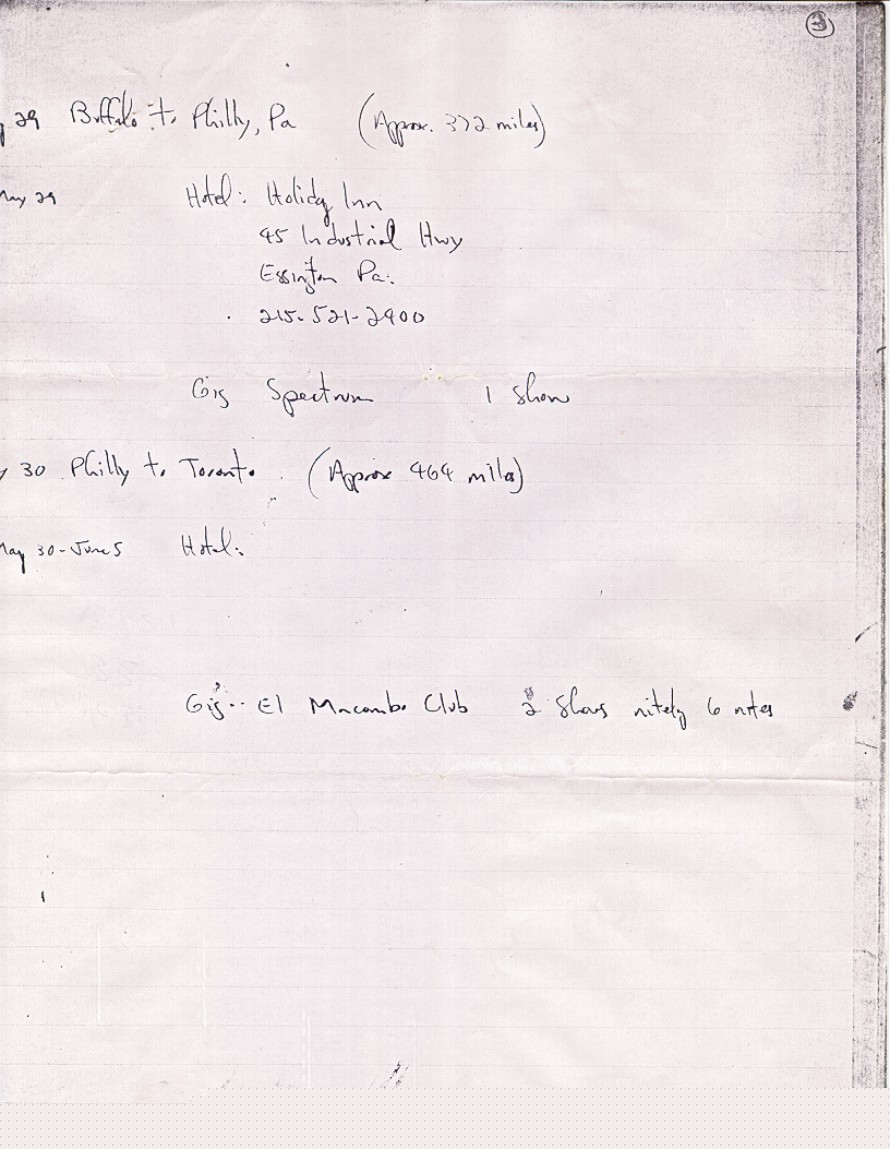 3
y 29 Buffalo to Philly, Pa (Approx. 372 miles)
May 29 Hotel: Holiday Inn
45 Industrial Hwy
Essington Pa.
215-521-2900
Gig Spectrum 1 Show
y 30 Philly to Toronto (Approx 464 miles)
May 30-June 5 Hotel:
Gig.. El Macambo Club 2 Shows nitely 6 nites